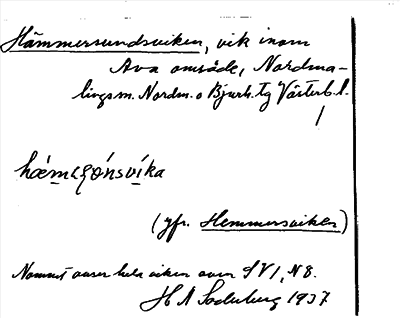 Hämmersundsviken, vik inom
Ava område, Nordma-
lings sn. Nordm. o Bjurh. tg Västerb. l.
(jfr. Hemmersviken)
Namnet avser hela viken över SV 1, N 8.
H N Söderberg 1937